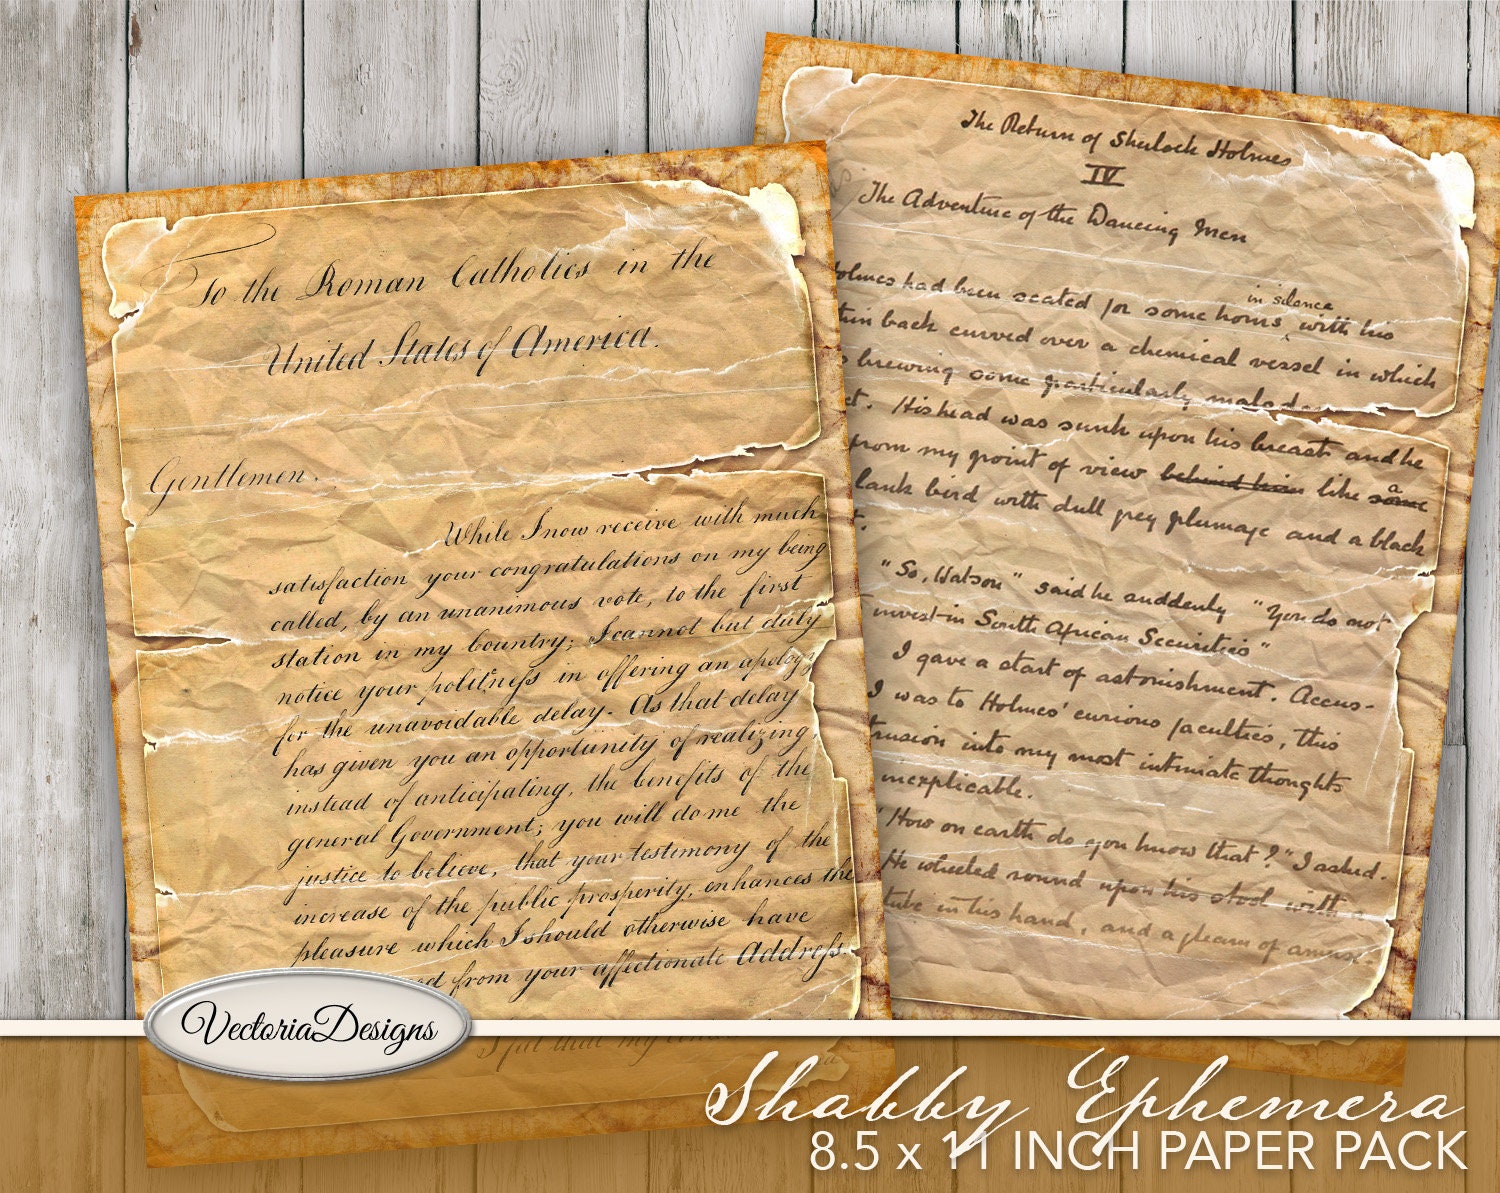 To the Roman Catholics in the
United States of America.
Gentlemen.
While I now receive with much
satisfaction your congratulations on my being
called, by an unanimous vote, to the first
station in my Country; I cannot but duly
notice your politness in offering an apology
for the unavoidable delay. As that delay
has given you an opportunity of realizing,
instead of anticipating, the benefits of the
general Government; you will do me the
justice to believe, that your testimony of the
increase of the public prosperity, enhances the
pleasure which I should otherwise have
ed from your affectionate Address.
I
The Return of Sherlock Holmes
IV
The Adventure of the Dancing Men
Holmes had been seated for some hours in silence with his
thin back curved over a chemical vessel in which
brewing some particularly malod-
His head was sunk upon his breast and he
from my point of view behind him like a same
lank bird with dull grey plumage and a black
"So, Watson" said he suddenly "You do not
invest in South African Securities"
I gave a start of astonishment. Accus-
I was to Holmes' curious faculties, this
trusion into my most intimate thoughts
inexplicable.
"How on earth do you know that?" I asked.
He wheeled round upon his stool with
tube in his hand, and a gleam of amuse-
VectoriaDesigns
Shabby Ephemera
8.5 x 11 INCH PAPER PACK